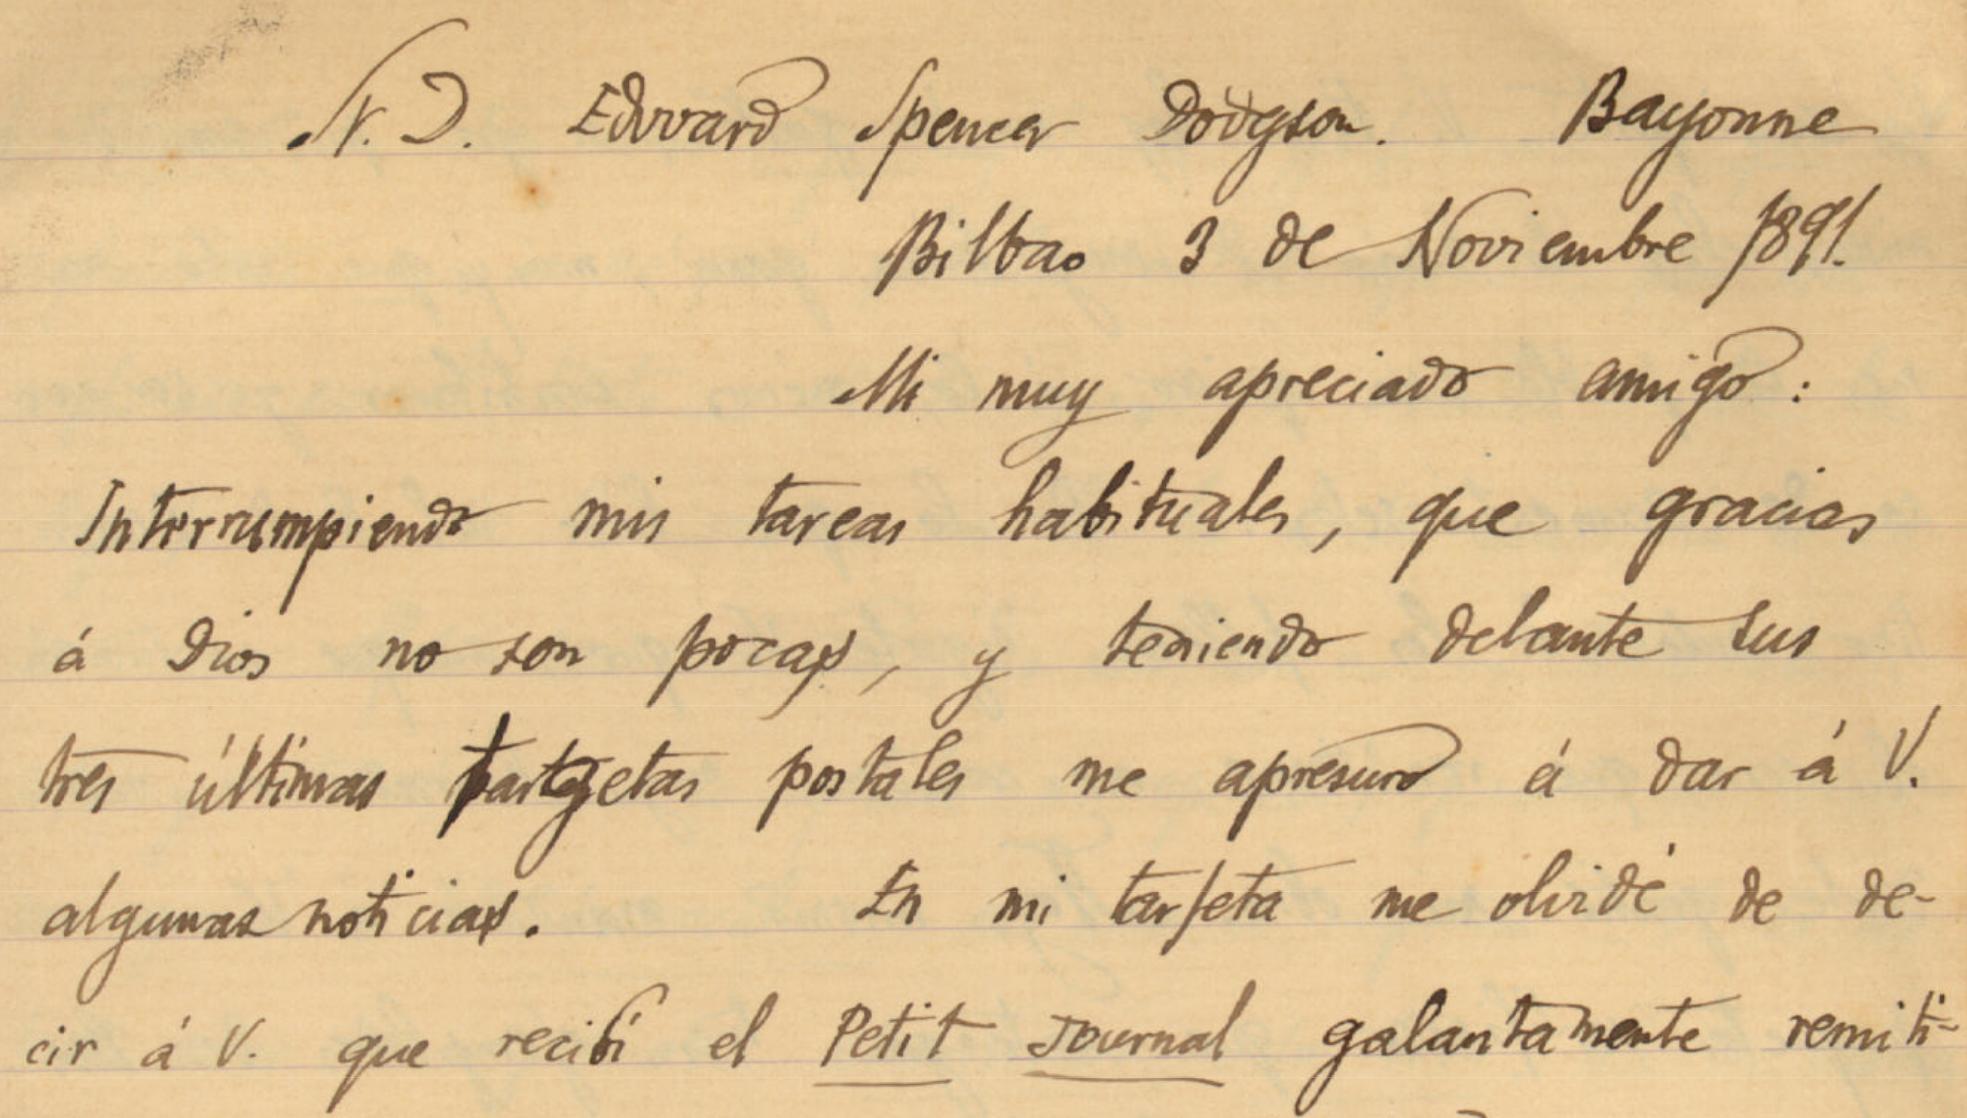 S. D. Edward Spencer Dodgson. Bayonne
Bilbao 3 de Noviembre 1891.
Mi muy apreciado amigo:
Interrumpiendo mis tareas habituales, que gracias
á Dios no son pocas, y teniendo delante sus
tres últimas targetas postales me apresuro á dar á V.
algunas noticias. En mi tarjeta me olvidé de de-
cir á V. que recibí el Petit Journal galantamente remiti-